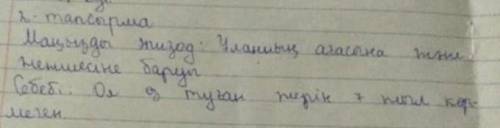 2-тапсырма
Маңызды эпизод: Ұланның ағасына және
жеңгесіне баруы
Себебі: Ол өз туған жерін 7 жыл көр-
меген